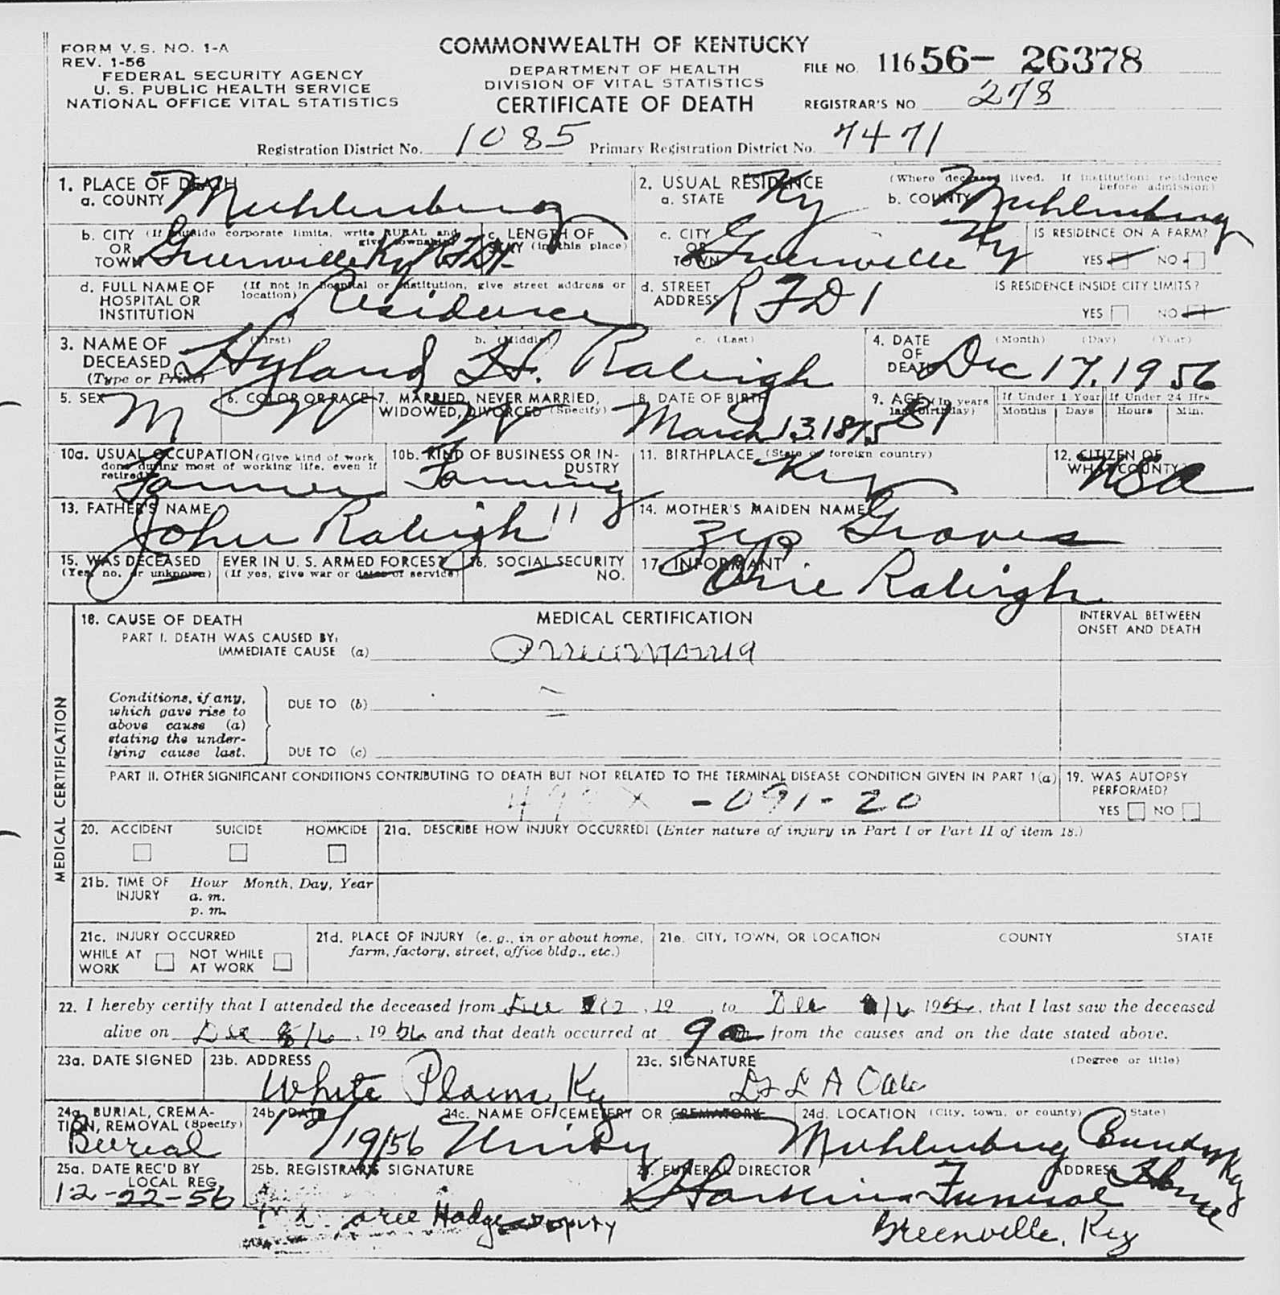 FORM V.S. NO. 1-A
REV. 1-56
FEDERAL SECURITY AGENCY
U. S. PUBLIC HEALTH SERVICE
NATIONAL OFFICE VITAL STATISTICS
COMMONWEALTH OF KENTUCKY
DEPARTMENT OF HEALTH
DIVISION OF VITAL STATISTICS
CERTIFICATE OF DEATH
FILE NO. 116 56- 26378
REGISTRAR'S NO 278
Registration District No. 1085 Primary Registration District No. 7471
1. PLACE OF DEATH
a. COUNTY Muhlenberg
2. USUAL RESIDENCE (Where deceased lived. If institution: residence before admission)
a. STATE Ky b. COUNTY Muhlenberg
b. CITY (If outside corporate limits, write RURAL and give township) OR TOWN Greenville Ky
c. LENGTH OF STAY (in this place)
c. CITY OR TOWN Greenville Ky
IS RESIDENCE ON A FARM?
YES NO
d. FULL NAME OF HOSPITAL OR INSTITUTION (If not in hospital or institution, give street address or location) Residence
d. STREET ADDRESS R F D 1
IS RESIDENCE INSIDE CITY LIMITS?
YES NO
3. NAME OF DECEASED (Type or Print) a. (First) b. (Middle) c. (Last)
Hyland H. Raleigh
4. DATE OF DEATH (Month) (Day) (Year)
Dec 17, 1956
5. SEX M
6. COLOR OR RACE W
7. MARRIED, NEVER MARRIED, WIDOWED, DIVORCED (Specify) W
8. DATE OF BIRTH March 13, 1875
9. AGE (In years last birthday) 81
If Under 1 Year Months Days
If Under 24 Hrs Hours Min.
10a. USUAL OCCUPATION (Give kind of work done during most of working life, even if retired) Farmer
10b. KIND OF BUSINESS OR INDUSTRY Farming
11. BIRTHPLACE (State or foreign country) Ky
12. CITIZEN OF WHAT COUNTY? USA
13. FATHER'S NAME John Raleigh
14. MOTHER'S MAIDEN NAME Zip Graves
15. WAS DECEASED EVER IN U. S. ARMED FORCES?
(Yes, no, or unknown) (If yes, give war or dates of service)
16. SOCIAL SECURITY NO.
17. INFORMANT Orie Raleigh
MEDICAL CERTIFICATION
18. CAUSE OF DEATH
MEDICAL CERTIFICATION
INTERVAL BETWEEN ONSET AND DEATH
PART I. DEATH WAS CAUSED BY:
IMMEDIATE CAUSE (a) Pneumonia
Conditions, if any, which gave rise to above cause (a) stating the underlying cause last.
DUE TO (b)
DUE TO (c)
PART II. OTHER SIGNIFICANT CONDITIONS CONTRIBUTING TO DEATH BUT NOT RELATED TO THE TERMINAL DISEASE CONDITION GIVEN IN PART 1(a)
493X -091-20
19. WAS AUTOPSY PERFORMED?
YES NO
20. ACCIDENT SUICIDE HOMICIDE
21a. DESCRIBE HOW INJURY OCCURRED: (Enter nature of injury in Part I or Part II of item 18.)
21b. TIME OF INJURY Hour Month, Day, Year
a. m.
p. m.
21c. INJURY OCCURRED
WHILE AT WORK NOT WHILE AT WORK
21d. PLACE OF INJURY (e. g., in or about home, farm, factory, street, office bldg., etc.)
21e. CITY, TOWN, OR LOCATION COUNTY STATE
22. I hereby certify that I attended the deceased from Dec 12, 19 , to Dec 16 1956, that I last saw the deceased
alive on Dec 16, 1956 and that death occurred at 9 a m from the causes and on the date stated above.
23a. DATE SIGNED
23b. ADDRESS White Plains Ky
23c. SIGNATURE (Degree or title)
Dr L A
24a. BURIAL, CREMATION, REMOVAL (Specify) Burial
24b. DATE 12/19/56
24c. NAME OF CEMETERY OR CREMATORY Unity
24d. LOCATION (City, town, or county) (State)
Muhlenburg County Ky
25a. DATE REC'D BY LOCAL REG. 12-22-56
25b. REGISTRAR'S SIGNATURE
Hodge Deputy
FUNERAL DIRECTOR ADDRESS
Harkins Funeral Home
Greenville, Ky